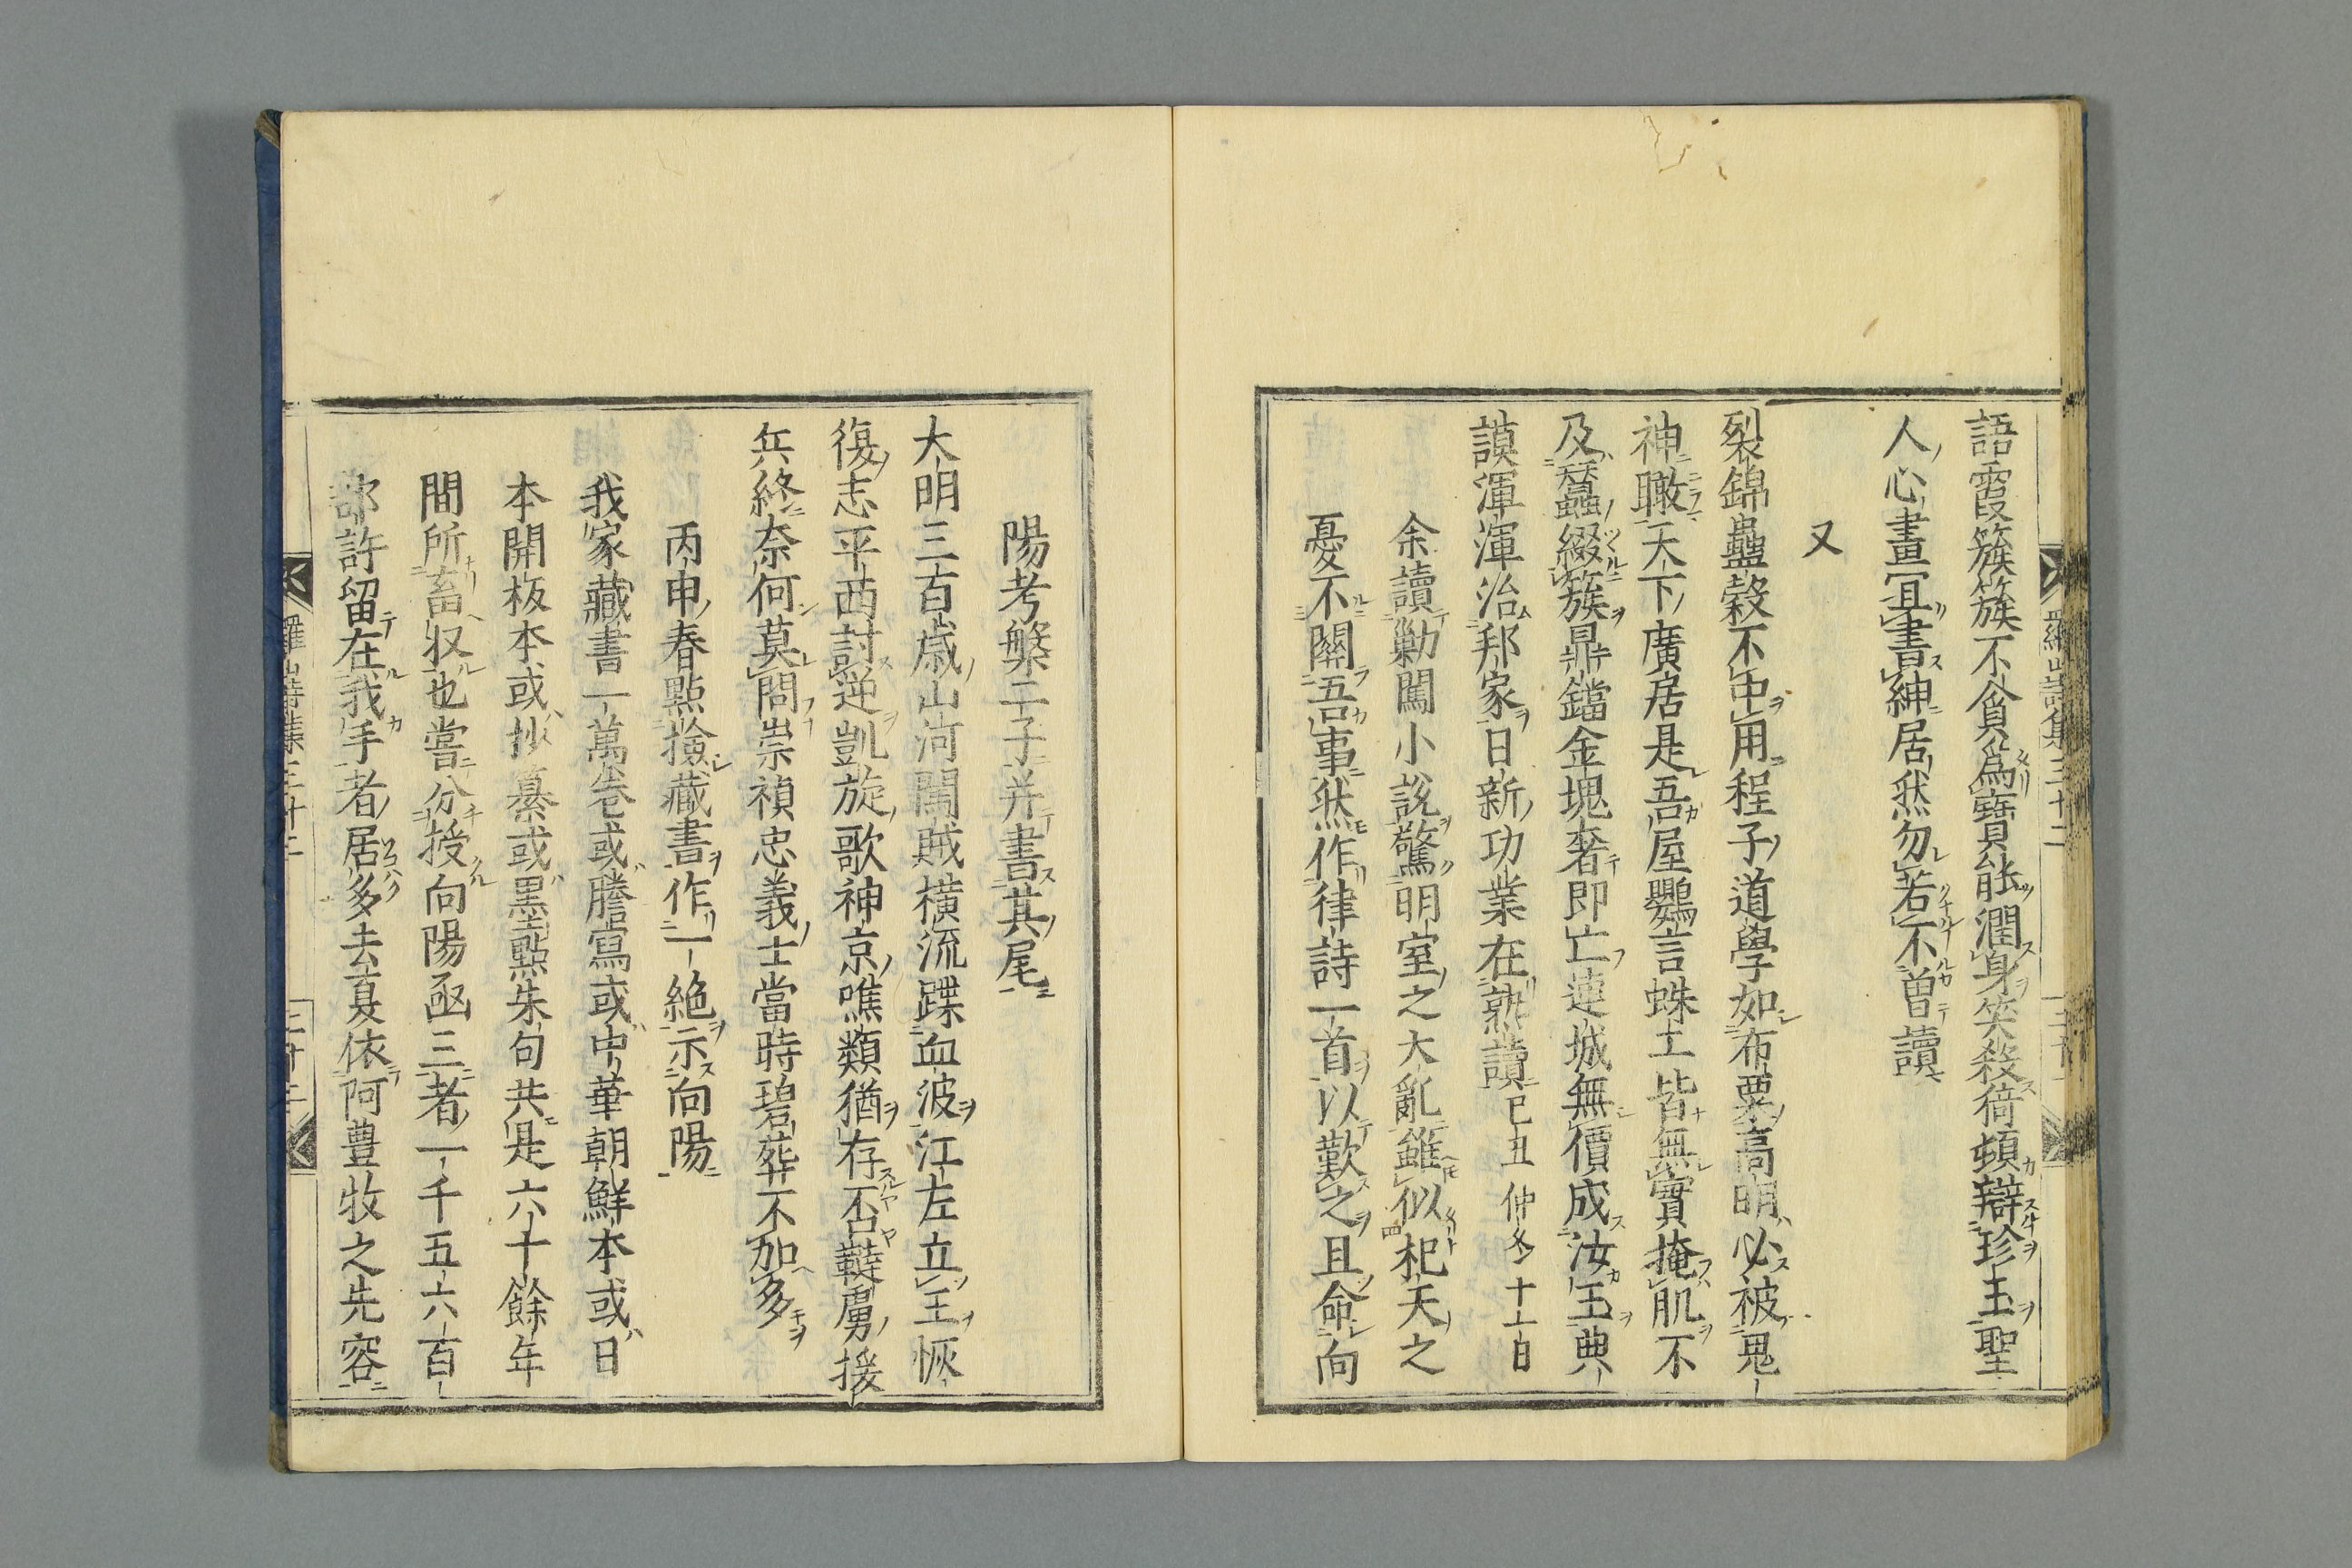 語霞簇簇不貪爲寶能潤身笑殺荷頓辯珍玉聖
人心畫宜書紳居然勿若不曽讀
又
裂錦蠱穀不中用程子道學如布粟高明必被鬼
神瞰天下廣居是吾屋鸚言蛛土皆無實掩肌不
及蠶綴簇鼎鐺金塊奢即亡連城無價成汝玉典
謨渾渾治邦家日新功業在熟讀己丑仲冬十一日
余讀勦闖小說驚明室之大亂雖似杞天之
憂不關吾事然作律詩一首以歎之且命向
陽考槃二子并書其尾
大明三百歳山河闖賊横流蹀血波江左立王恢
復志平西討逆凱旋歌神京噍類猶存否韃虜援
兵終奈何莫問崇禎忠義士當時碧葬不加多
丙申春點撿藏書作一絶示向陽
我家藏書一萬卷或謄寫或中華朝鮮本或日
本開板本或抄纂或墨點朱句共是六十餘年
間所畜収也嘗分授向陽函三者一千五六百
部許留在我手者居多去夏依阿豊牧之先容
羅山詩集三十二